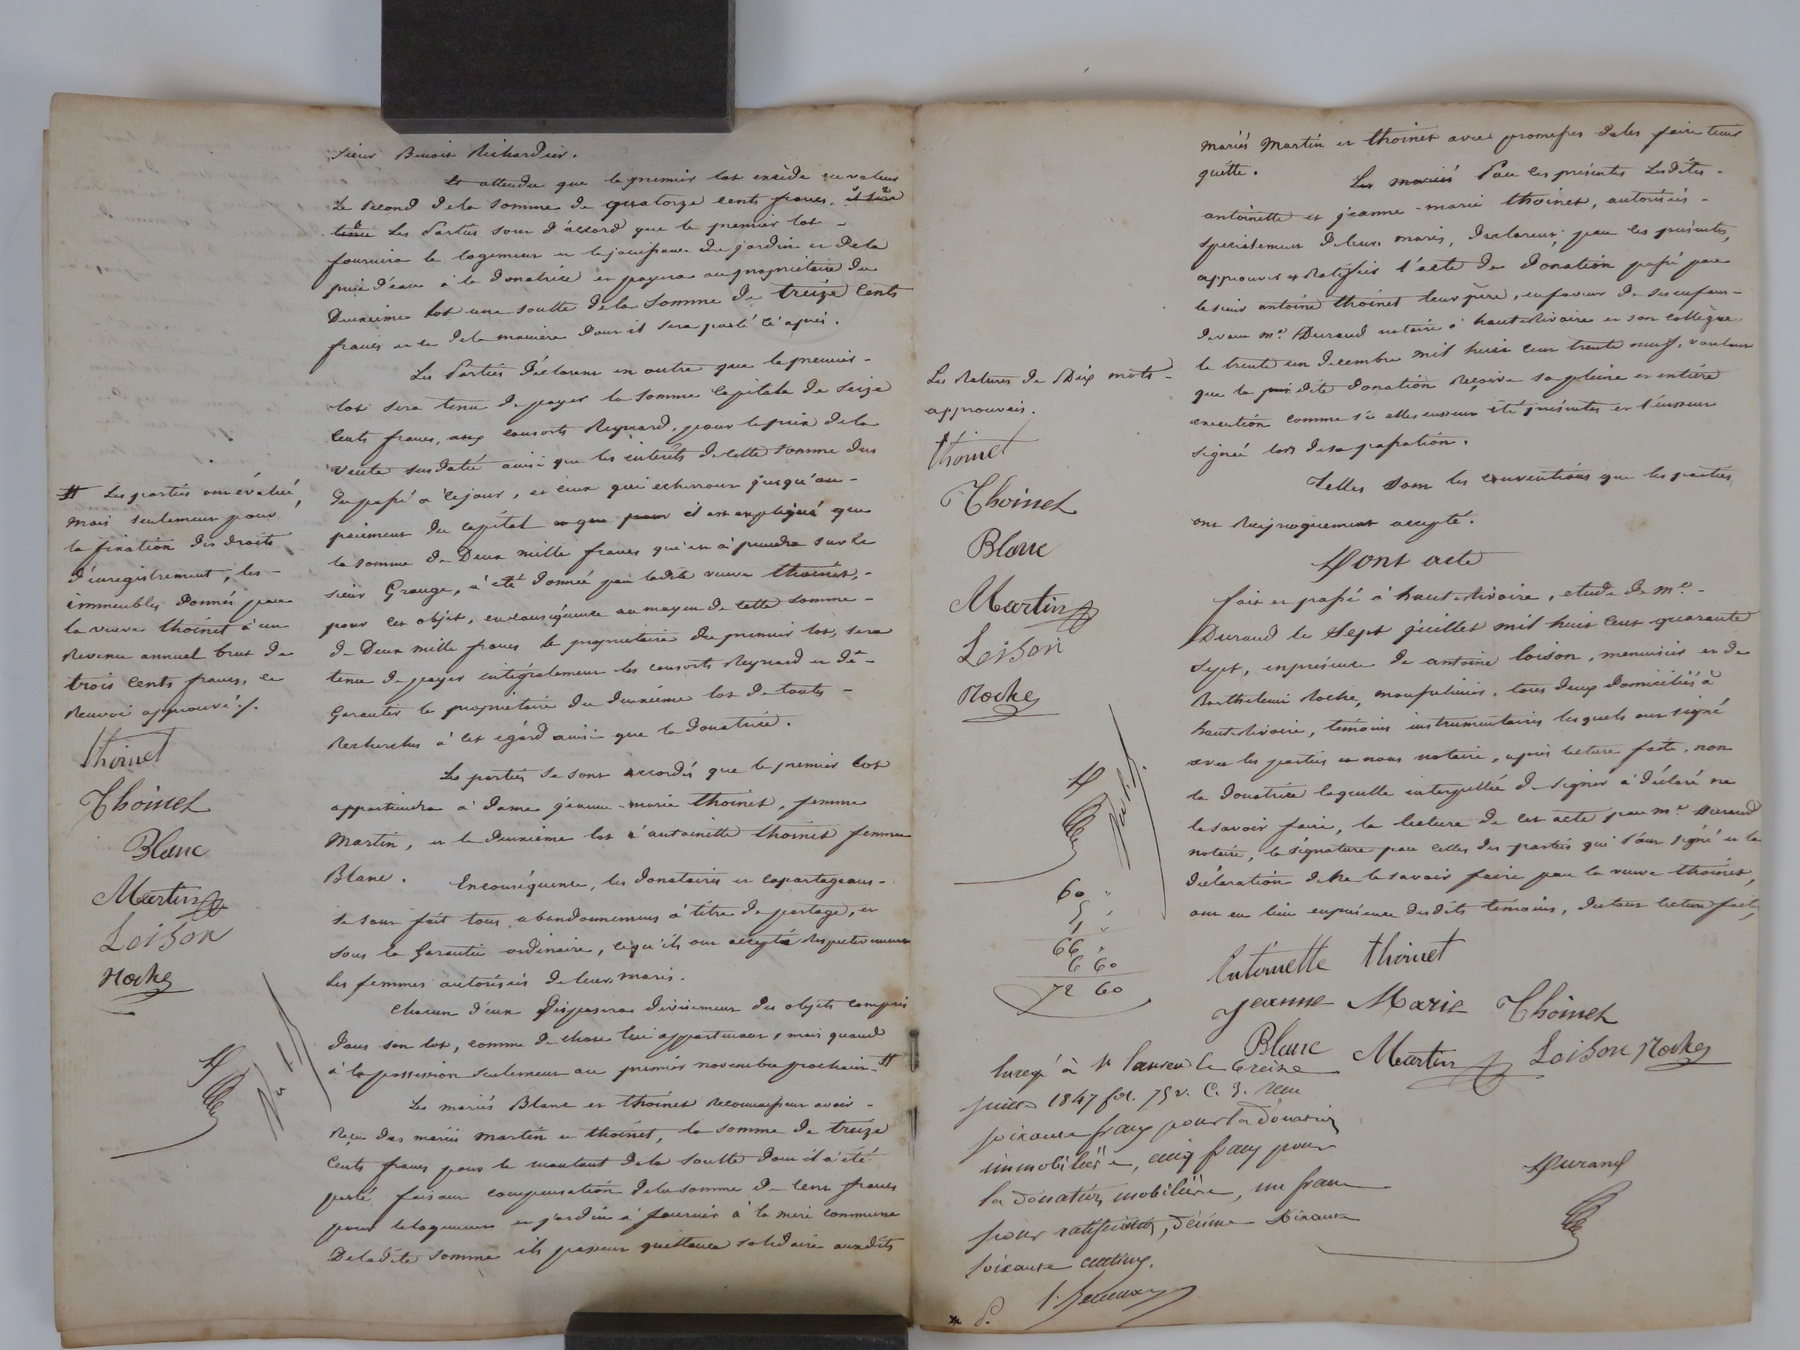 sieur Benoit Richardier.
Et attendu que le premier lot excède en valeur
le second de la somme de quatorze cents francs, il sera
tenu les Parties sont d'accord que le premier lot
fournira le logement et la jouissance du jardin et de la
prise d'eau à la donatrice et payera au propriétaire du
Deuxième lot une soulte de la somme de treize cents
francs et ce de la manière dont il sera parlé ci après.
Les Parties déclarent en outre que le premier
lot sera tenu de payer la somme capitale de seize
cents francs, aux consorts Reynard, pour le prix de la
vente susdatée ainsi que les intérêts de cette somme dus
du passé à ce jour, et ceux qui echerront jusqu'au
paiement du capital il est expliqué que
la somme de Deux mille francs qui est à prendre sur le
sieur Grange, a été donnée par ladite veuve thoinet,
pour cet objet, en conséquence au moyen de cette somme
de Deux mille francs le propriétaire du premier lot, sera
tenu de payer intégralement les consorts Reynard et de
Garantir le propriétaire du deuxième lot de toutes
Recherches à cet égard ainsi que la donatrice.
Les parties se sont accordés que le premier lot
appartiendra à dame jeanne-marie thoinet, femme
Martin, et le deuxième lot à antoinette thoinet femme
Blanc.
En conséquence, les donataires et copartageans
se sont fait tous abandonnemens à titre de partage, et
sous la Garantie ordinaire, ce qu'ils ont accepté respectivement
les femmes autorisées de leurs maris.
Chacun d'eux Disposera divisément des objets compris
dans son lot, comme de chose lui appartenant, mais quand
à la possession seulement au premier novembre prochain. #
Les mariés Blanc et thoinet reconnaissent avoir
Reçu des mariés martin et thoinet, la somme de treize
cents francs pour le montant de la soulte dont il a été
parlé faisant compensation de la somme de cent francs
pour le logement et jardin à fournir à la mère commune
De ladite somme ils passent quittance solidaire auxdits
# Les parties ont évalué,
mais seulement pour
la fixation des droits
d'enregistrement, les
immeubles donnés par
la veuve thoinet à un
Revenu annuel brut de
trois cents francs, ce
Renvoi approuvé ./.
thoinet
Thoinet
Blanc
Martin
Loison
Roche
mariés Martin et thoinet avec promesses de les faire tenir
quitte.
Les mariés Par ces présentes Lesdites
antoinette et jeanne-marie thoinet, autorisées
spécialement de leurs maris, declarent, par les présentes,
approuver et Ratifier l'acte de donation passé par
le sieur antoine thoinet leur père, en faveur de ses enfans
devant me. Durand notaire à haut-Rivoire et son collègue
le trente un decembre mil huit cent trente neuf, voulant
que la dite donation Reçoive sa pleine et entière
exécution comme si elles eussent été présentes et l'eussent
signée lors de sa passation.
Telles sont les conventions que les parties
ont Réciproquement accepté.
Dont acte
fait et passé à haut-Rivoire, etude de me.
Durand le sept juillet mil huit cent quarante
sept, en présence de antoine loison, menuisier et de
Barthelemi Roche, tous deux domiciliés à
haut-Rivoire, témoins instrumentaires lesquels ont signé
avec les parties et nous notaire, après lecture faite, non
la donatrice laquelle interpellée de signer a déclaré ne
le savoir faire, la lecture de cet acte par me. Durand
notaire, la signature par celles des parties qui l'ont signé et la
déclaration de ne le savoir faire par la veuve thoinet,
ont eu lieu en présence desdits témoins, du tout lecture faite,
Les Ratures de Dix mots
approuvés.
thoinet
Thoinet
Blanc
Martin
Loison
Roche
60 "
5 "
1 "
66 "
6 60
72 60
Antoinette thoinet
Jeanne Marie Thoinet
Blanc Martin Loison Roche
Enregé à St laurent le treize
juillet 1847 fol. 75 v. C. 3. reçu
soixante francs pour la donation
immobilière, cinq francs pour
la donation mobilière, un franc
pour ratification, décime six francs
soixante centimes.
Durand